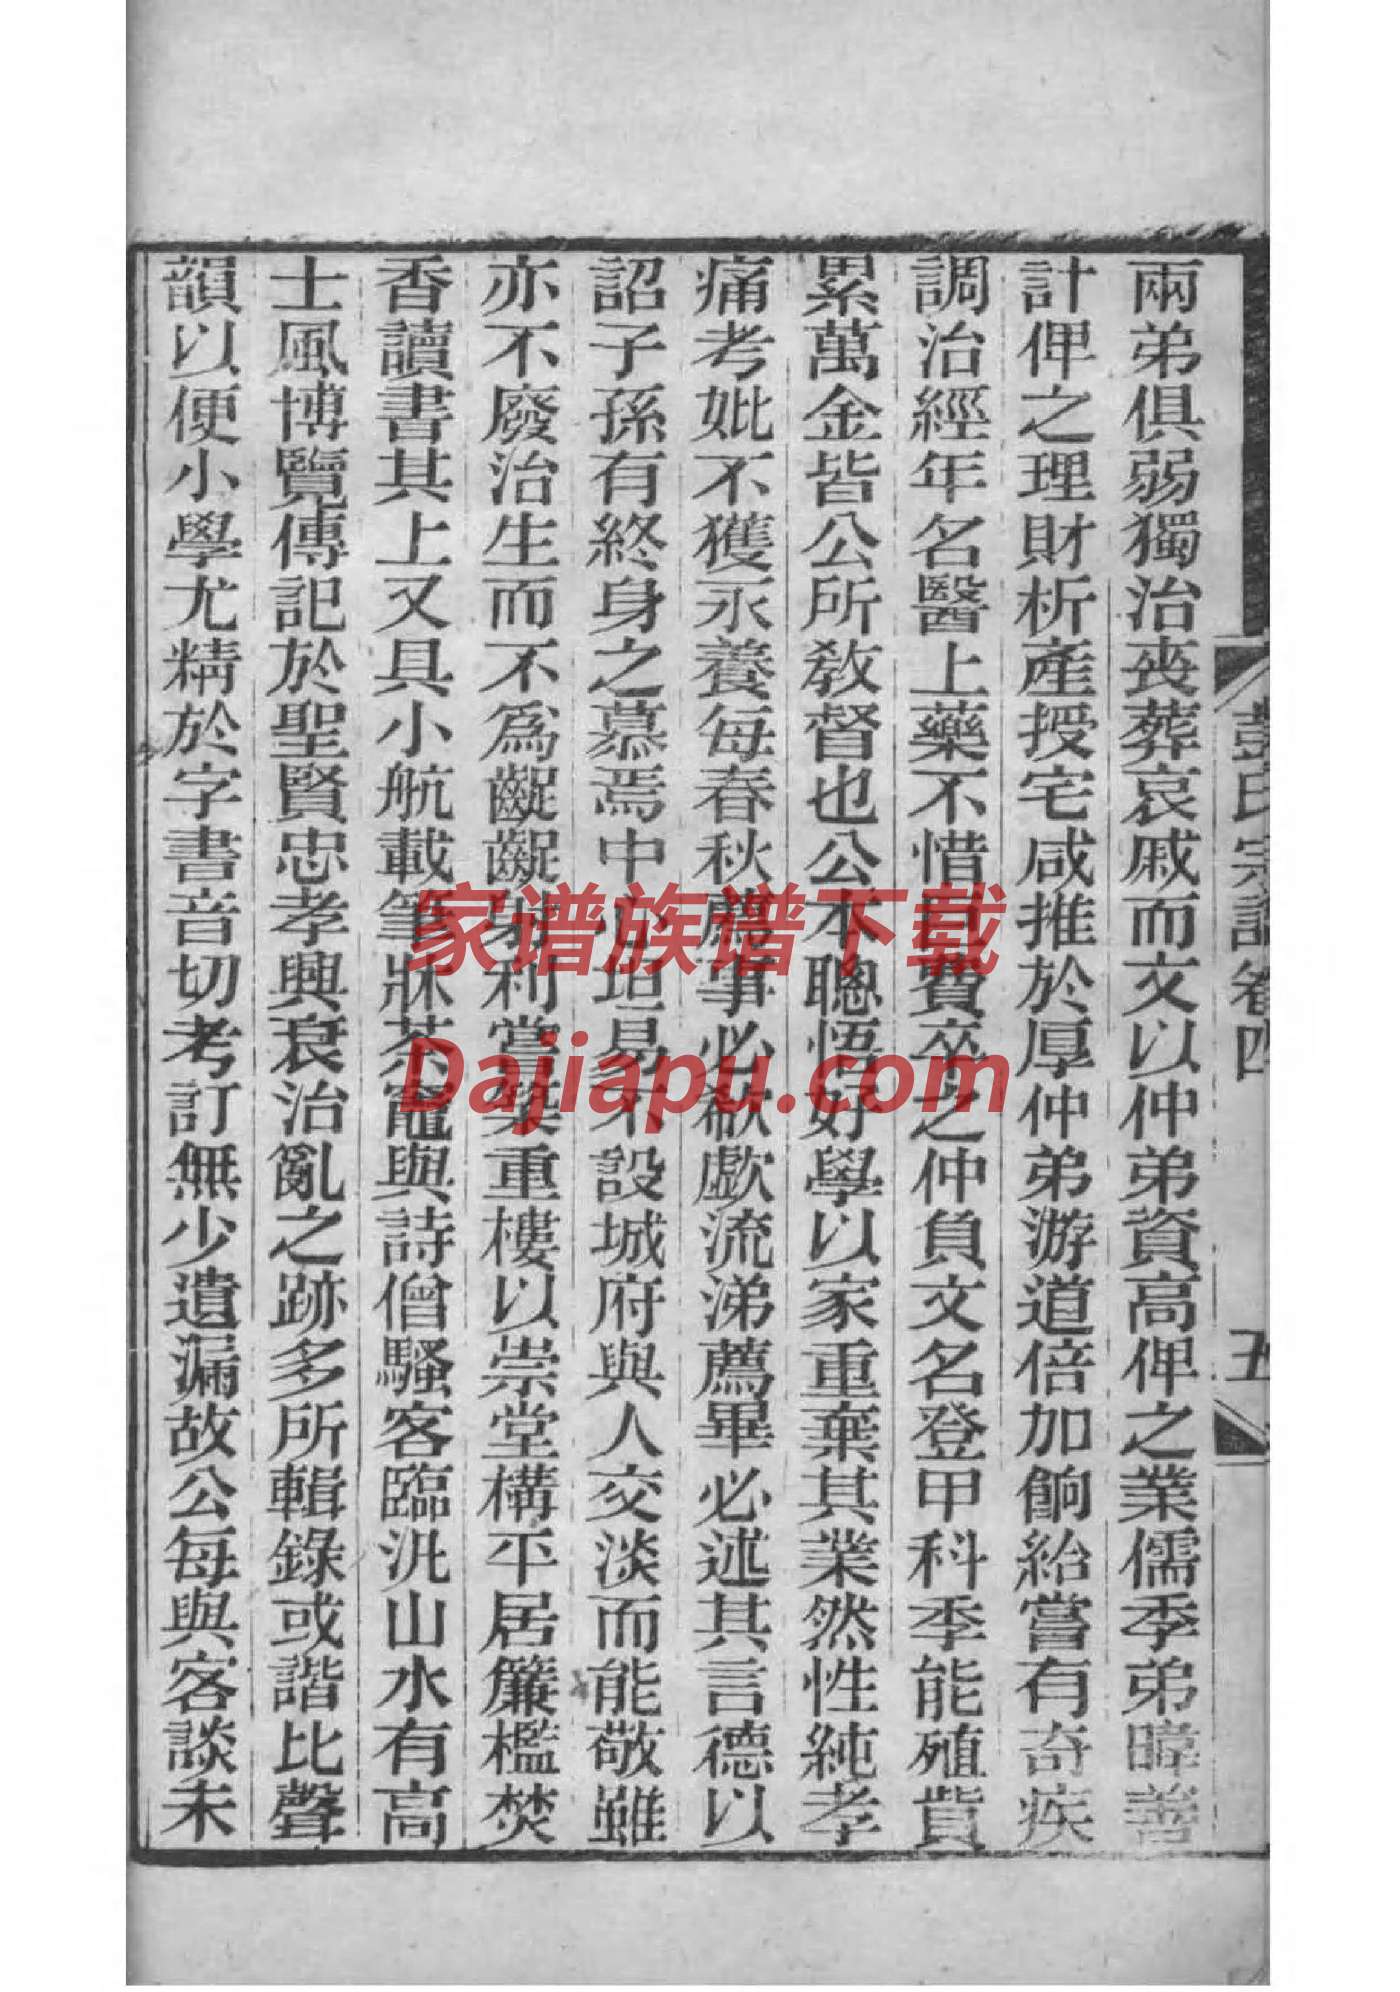 彭氏宗譜卷四
五
兩弟俱弱獨治喪葬哀戚而文以仲弟資高俾之業儒季弟暐善
計俾之理財析產授宅咸推於厚仲弟游道倍加餉給嘗有奇疾
調治經年名醫上藥不惜百費卒之仲負文名登甲科季能殖貲
累萬金皆公所敎督也公本聰悟好學以家重棄其業然性純孝
痛考妣不獲永養每春秋薦事必欷歔流涕薦畢必述其言德以
詔子孫有終身之慕焉中心坦易不設城府與人交淡而能敬雖
亦不廢治生而不爲齪齪射利嘗築重樓以崇堂構平居簾檻焚
香讀書其上又具小航載筆牀茶竈與詩僧騷客臨汎山水有高
士風博覽傳記於聖賢忠孝興衰治亂之跡多所輯錄或諧比聲
韻以便小學尤精於字書音切考訂無少遺漏故公每與客談未
家谱族谱下载
Dajiapu.com